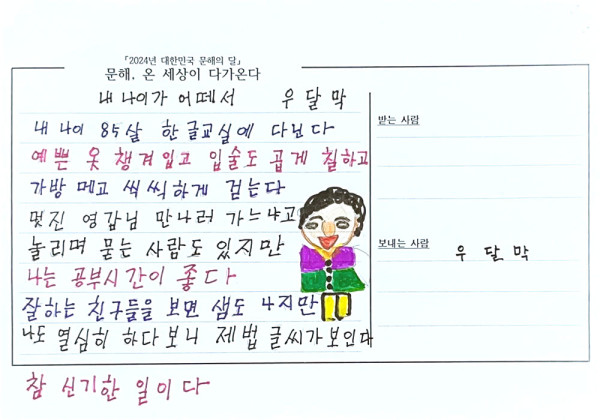 「2024년 대한민국 문해의 달」
문해, 온 세상이 다가온다
내 나이가 어떼서 우달막
내 나이 85살 한글교실에 다닌다
예쁜 옷 챙겨입고 입술도 곱게 칠하고
가방 메고 씩씩하게 걷는다
멋진 영감님 만나러 가느냐고
놀리며 묻는 사람도 있지만
나는 공부시간이 좋다
잘하는 친구들을 보면 샘도 나지만
나도 열심히 하다보니 제법 글씨가보인다
참 신기한 일이다
받는 사람
보내는 사람
우달막